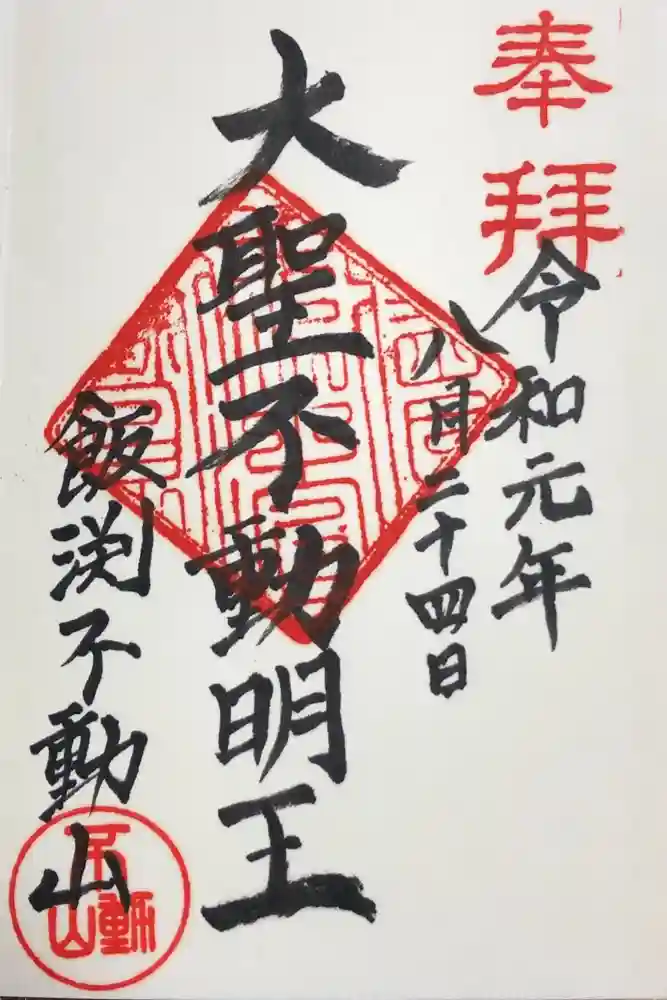 奉拝
令和元年
八月二十四日
大聖不動明王
飯渕不動山
不動山